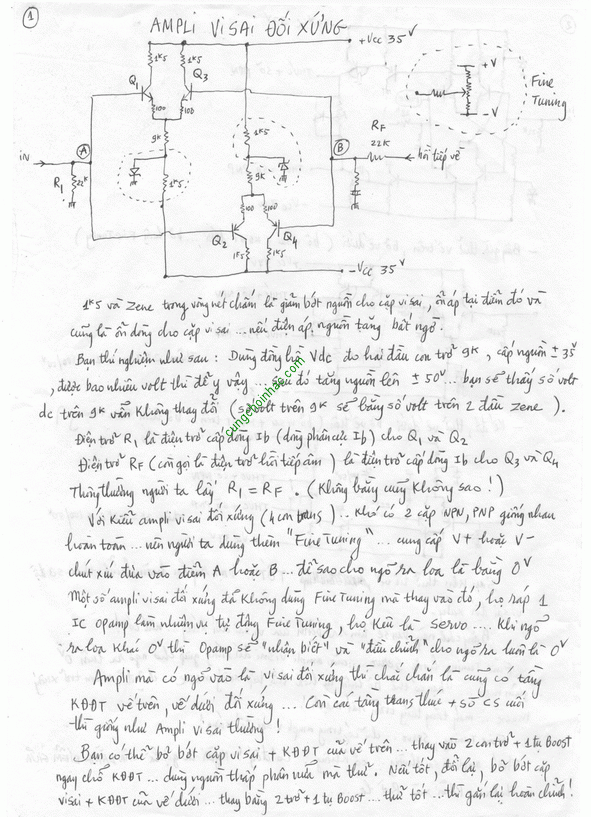 1
AMPLI VI SAI ĐỐI XỨNG
+Vcc 35V
1K5
1K5
Q1
Q3
100
100
9K
1K5
+V
-V
Fine
Tuning
A
IN
R1
22K
1K5
9K
B
RF
22K
hồi tiếp về
100
100
Q2
Q4
1K5
1K5
-Vcc 35V
1K5 và Zene trong vòng nét chấm là giảm bớt nguồn cho cặp vi sai, ổn áp tại điểm đó và
cũng là ổn dòng cho cặp vi sai ... nếu điện áp nguồn tăng bất ngờ.
Bạn thí nghiệm như sau: Dùng đồng hồ Vdc đo hai đầu con trở 9K, cấp nguồn ± 35V
, được bao nhiêu volt thì để ý vậy ... sau đó tăng nguồn lên ± 50V ... bạn sẽ thấy số volt
dc trên 9K vẫn không thay đổi (số volt trên 9K sẽ bằng số volt trên 2 đầu zene).
cungchoinhac.com
Điện trở R1 là điện trở cấp dòng Ib (dòng phân cực Ib) cho Q1 và Q2
Điện trở RF (còn gọi là điện trở hồi tiếp âm) là điện trở cấp dòng Ib cho Q3 và Q4
Thông thường người ta lấy R1 = RF. (Không bằng cũng không sao!)
Với kiểu ampli vi sai đối xứng (4 con trans) .. khó có 2 cặp NPN, PNP giống nhau
hoàn toàn ... nên người ta dùng thêm "Fine Tuning" ... cung cấp V+ hoặc V-
chút xíu đưa vào điểm A hoặc B ... để sao cho ngõ ra loa là bằng 0V
Một số ampli vi sai đối xứng đã không dùng Fine Tuning mà thay vào đó, họ ráp 1
IC opamp làm nhiệm vụ tự động Fine Tuning, họ kêu là servo .... Khi ngõ
ra loa khác 0V thì Opamp sẽ "nhận biết" và "điều chỉnh" cho ngõ ra luôn là 0V
Ampli mà có ngõ vào là vi sai đối xứng thì chắc chắn là cũng có tầng
KĐĐT vế trên, vế dưới đối xứng ... Còn các tầng thang thúc + sò CS cuối
thì giống như Ampli vi sai thường!
Bạn có thể bỏ bớt cặp vi sai + KĐĐT của vế trên ... thay vào 2 con trở + 1 tụ Boost
ngay chỗ KĐĐT ... dùng nguồn thấp phân nửa mà thử. Nếu tốt, đổi lại, bỏ bớt cặp
vi sai + KĐĐT của vế dưới ... thay bằng 2 trở + 1 tụ Boost ... thử tốt ... thì gắn lại hoàn chỉnh!